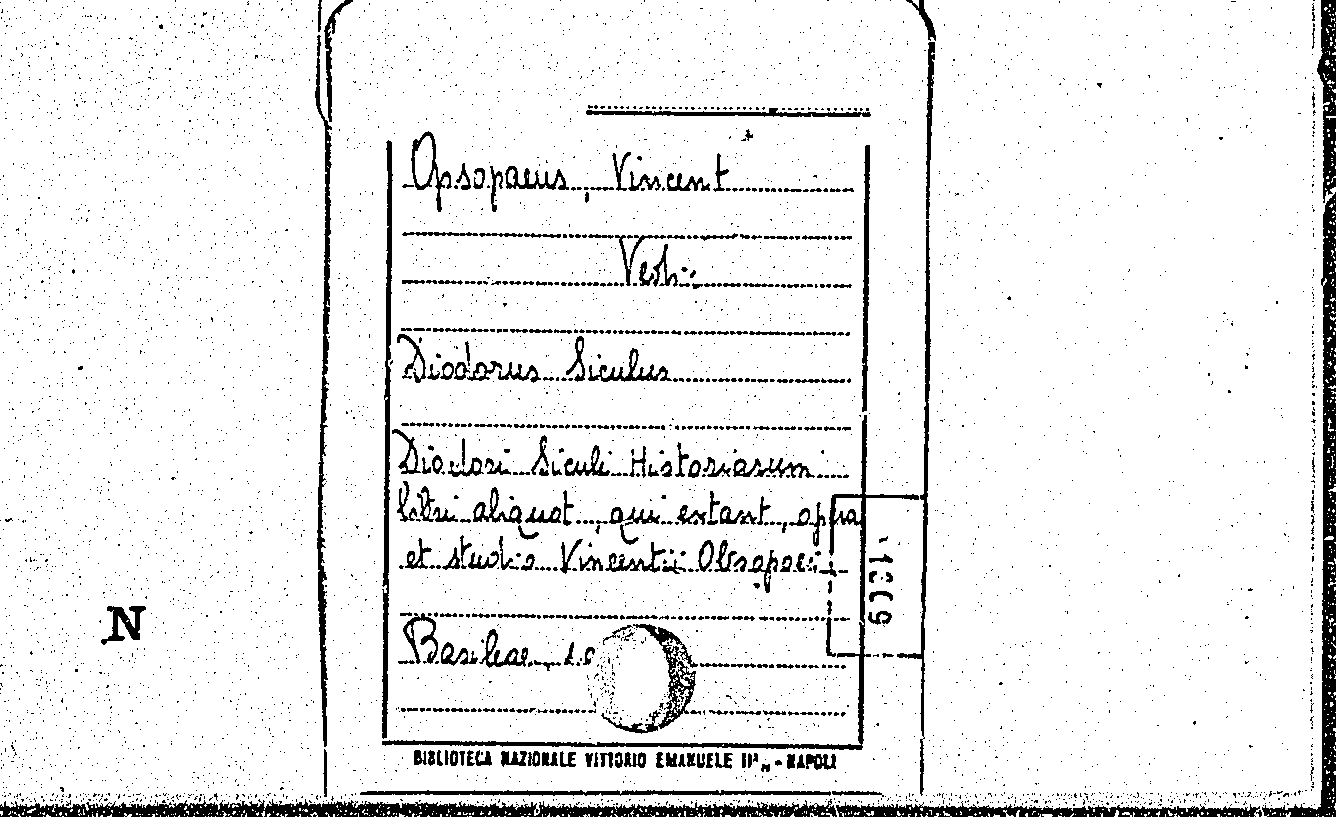 Opsopaeus, Vincent
Vedi:
Diodorus Siculus
Diodori Siculi Historiarum
libri aliquot, qui extant, opera
et studio Vincentii Obsopoei
Basileae, s.a
1809
N
BIBLIOTECA NAZIONALE VITTORIO EMANUELE III - NAPOLI